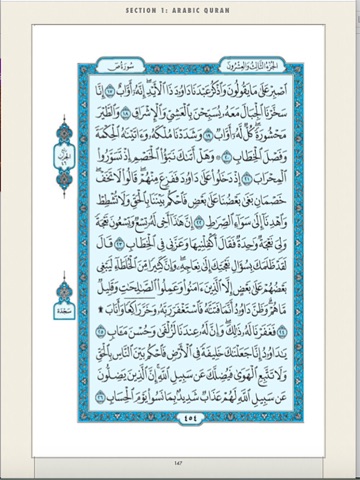 SECTION 1: ARABIC QURAN
سُورَةُ صٓ
الجُزْءُ الثَّالِثُ وَالعِشْرُونَ
ٱصْبِرْ عَلَىٰ مَا يَقُولُونَ وَٱذْكُرْ عَبْدَنَا دَاوُۥدَ ذَا ٱلْأَيْدِ إِنَّهُۥٓ أَوَّابٌ ١٧ إِنَّا
سَخَّرْنَا ٱلْجِبَالَ مَعَهُۥ يُسَبِّحْنَ بِٱلْعَشِىِّ وَٱلْإِشْرَاقِ ١٨ وَٱلطَّيْرَ
مَحْشُورَةً كُلٌّ لَّهُۥٓ أَوَّابٌ ١٩ وَشَدَدْنَا مُلْكَهُۥ وَءَاتَيْنَٰهُ ٱلْحِكْمَةَ
وَفَصْلَ ٱلْخِطَابِ ٢٠ وَهَلْ أَتَىٰكَ نَبَؤُا۟ ٱلْخَصْمِ إِذْ تَسَوَّرُوا۟
ٱلْمِحْرَابَ ٢١ إِذْ دَخَلُوا۟ عَلَىٰ دَاوُۥدَ فَفَزِعَ مِنْهُمْ قَالُوا۟ لَا تَخَفْ
خَصْمَانِ بَغَىٰ بَعْضُنَا عَلَىٰ بَعْضٍ فَٱحْكُم بَيْنَنَا بِٱلْحَقِّ وَلَا تُشْطِطْ
وَٱهْدِنَآ إِلَىٰ سَوَآءِ ٱلصِّرَٰطِ ٢٢ إِنَّ هَٰذَآ أَخِى لَهُۥ تِسْعٌ وَتِسْعُونَ نَعْجَةً
وَلِىَ نَعْجَةٌ وَٰحِدَةٌ فَقَالَ أَكْفِلْنِيهَا وَعَزَّنِى فِى ٱلْخِطَابِ ٢٣ قَالَ
لَقَدْ ظَلَمَكَ بِسُؤَالِ نَعْجَتِكَ إِلَىٰ نِعَاجِهِۦ وَإِنَّ كَثِيرًا مِّنَ ٱلْخُلَطَآءِ لَيَبْغِى
بَعْضُهُمْ عَلَىٰ بَعْضٍ إِلَّا ٱلَّذِينَ ءَامَنُوا۟ وَعَمِلُوا۟ ٱلصَّٰلِحَٰتِ وَقَلِيلٌ
مَّا هُمْ وَظَنَّ دَاوُۥدُ أَنَّمَا فَتَنَّٰهُ فَٱسْتَغْفَرَ رَبَّهُۥ وَخَرَّ رَاكِعًا وَأَنَابَ ۩
٢٤ فَغَفَرْنَا لَهُۥ ذَٰلِكَ وَإِنَّ لَهُۥ عِندَنَا لَزُلْفَىٰ وَحُسْنَ مَـَٔابٍ ٢٥
يَٰدَاوُۥدُ إِنَّا جَعَلْنَٰكَ خَلِيفَةً فِى ٱلْأَرْضِ فَٱحْكُم بَيْنَ ٱلنَّاسِ بِٱلْحَقِّ
وَلَا تَتَّبِعِ ٱلْهَوَىٰ فَيُضِلَّكَ عَن سَبِيلِ ٱللَّهِ إِنَّ ٱلَّذِينَ يَضِلُّونَ
عَن سَبِيلِ ٱللَّهِ لَهُمْ عَذَابٌ شَدِيدٌۢ بِمَا نَسُوا۟ يَوْمَ ٱلْحِسَابِ ٢٦
سَجْدَة
٤٥٤
147